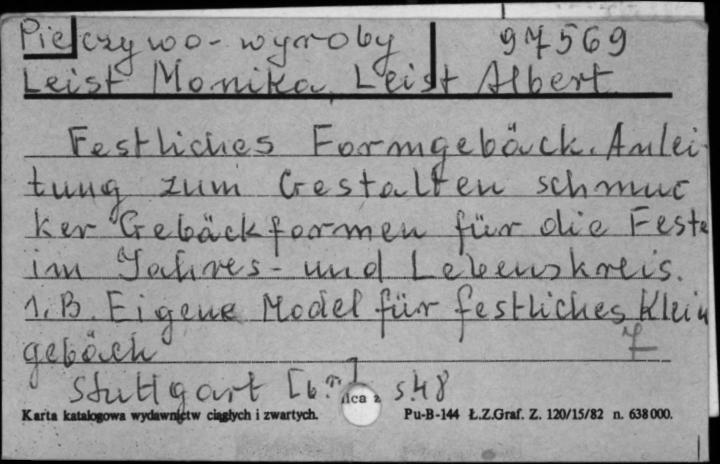 Pieczywo - wyroby 97569
Leist Monika, Leist Albert
Festliches Formgebäck. Anlei-
tung zum Gestalten schmuc
ker Gebäckformen für die Feste
im Jahres- und Lebenskreis.
1. B. Eigene Model für festliches Klein
gebäck
Stuttgart [b.r.] s. 48
Karta katalogowa wydawnictw ciągłych i zwartych. Pu-B-144 Ł.Z.Graf. Z. 120/15/82 n. 638000.